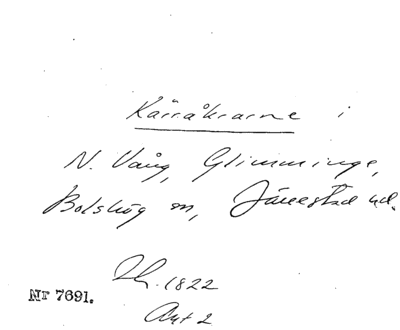 Kärråkrarne i
N. Vång, Glimminge,
Bolshög m, Järrestad hd.
Lh. 1822
Akt 2
Nr 7691.